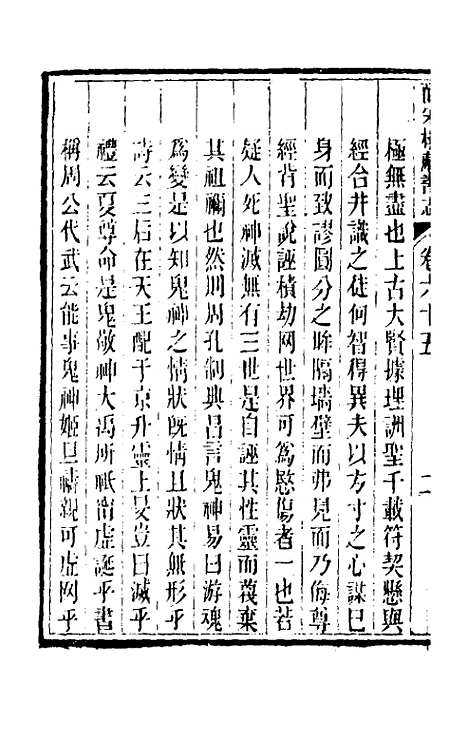 皕宋樓藏書志 卷六十五 二
極無盡也上古大賢據理詶聖千載符契懸與
經合井識之徒何智得異夫以方寸之心謀己
身而致謬圓分之眸隔墻壁而弗見而乃侮尊
經背聖說誣積劫网世界可爲愍傷者一也若
疑人死神滅無有三世是自誣其性靈而蔑棄
其祖禰也然則周孔制典昌言鬼神易曰游魂
爲變是以知鬼神之情狀既情且狀其無形乎
詩云三后在天王配于京升靈上旻豈曰滅乎
禮云夏尊命是鬼敬神大禹所祇甯虛誕乎書
稱周公代武云能事鬼神姬旦禱親可虛网乎